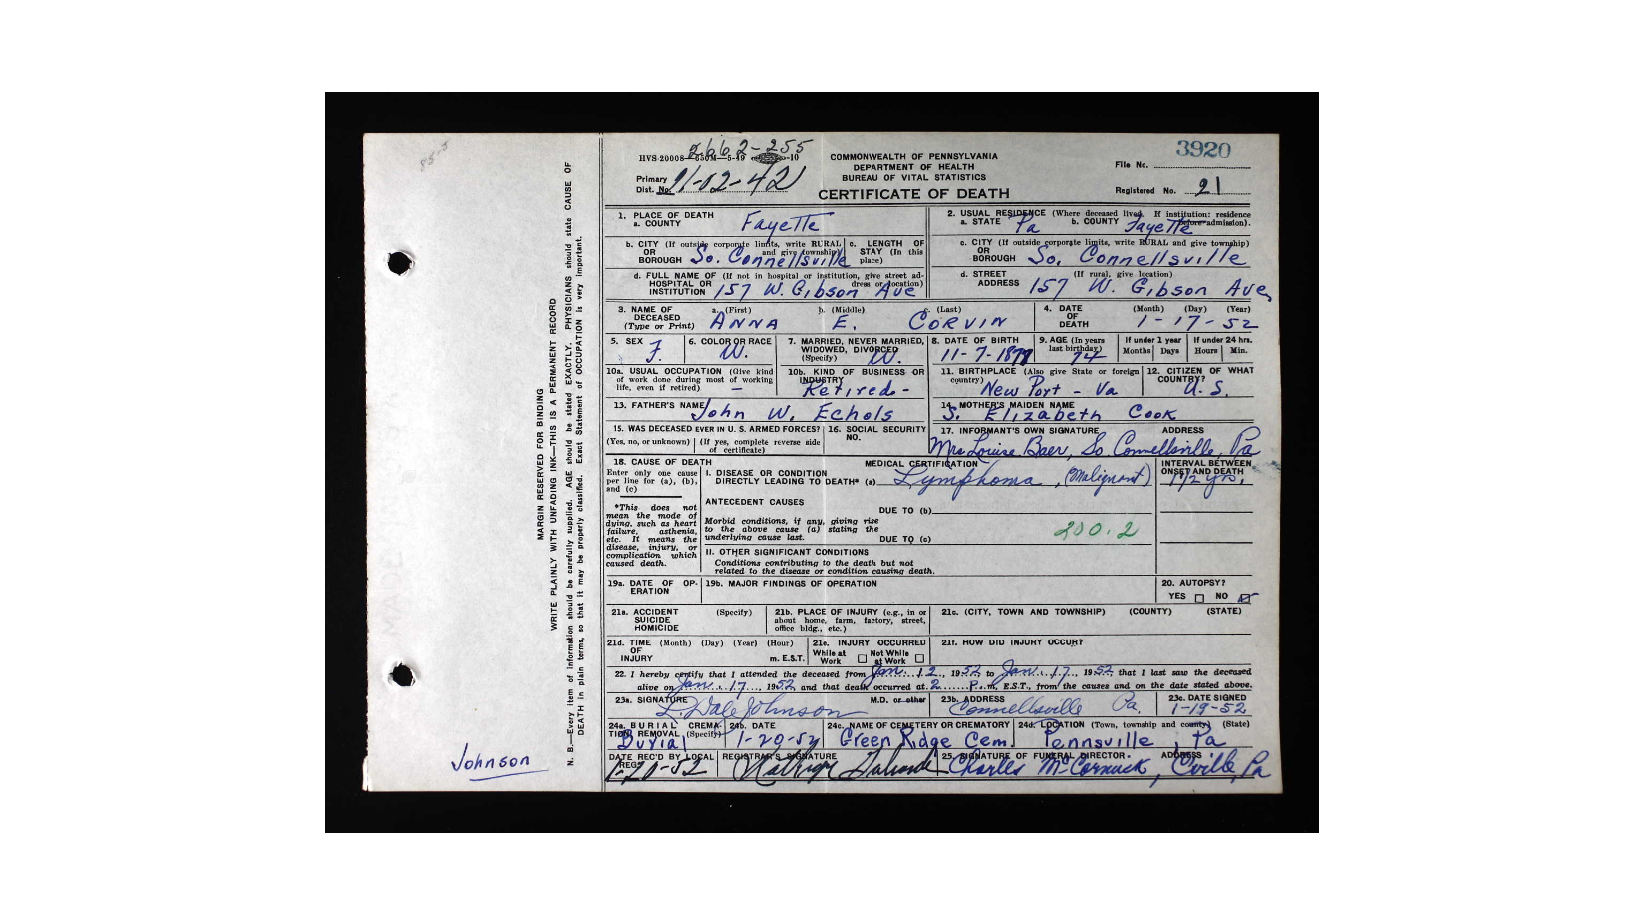 3920
HVS-20008—650M—5-49 -10
2662-255
COMMONWEALTH OF PENNSYLVANIA
DEPARTMENT OF HEALTH
BUREAU OF VITAL STATISTICS
CERTIFICATE OF DEATH
File No.
Primary Dist. No. 21-02-42
Registered No. 21
1. PLACE OF DEATH
a. COUNTY Fayette
2. USUAL RESIDENCE (Where deceased lived. If institution: residence before admission).
a. STATE Pa b. COUNTY Fayette
b. CITY (If outside corporate limits, write RURAL and give township) OR BOROUGH So. Connellsville
c. LENGTH OF STAY (In this place)
c. CITY (If outside corporate limits, write RURAL and give township) OR BOROUGH So. Connellsville
d. FULL NAME OF (If not in hospital or institution, give street address or location) HOSPITAL OR INSTITUTION 157 W. Gibson Ave
d. STREET ADDRESS (If rural, give location) 157 W. Gibson Ave,
3. NAME OF DECEASED (Type or Print) a. (First) b. (Middle) c. (Last)
ANNA E. CORVIN
4. DATE OF DEATH (Month) (Day) (Year)
1-17-52
5. SEX F.
6. COLOR OR RACE W.
7. MARRIED, NEVER MARRIED, WIDOWED, DIVORCED (Specify) W.
8. DATE OF BIRTH 11-7-1877
9. AGE (In years last birthday) 74
If under 1 year Months Days
If under 24 hrs. Hours Min.
10a. USUAL OCCUPATION (Give kind of work done during most of working life, even if retired) —
10b. KIND OF BUSINESS OR INDUSTRY Retired-
11. BIRTHPLACE (Also give State or foreign country) New Port - Va
12. CITIZEN OF WHAT COUNTRY? U.S.
13. FATHER'S NAME John W. Echols
14. MOTHER'S MAIDEN NAME S. Elizabeth Cook
15. WAS DECEASED EVER IN U. S. ARMED FORCES?
(Yes, no, or unknown) (If yes, complete reverse side of certificate)
16. SOCIAL SECURITY NO.
17. INFORMANT'S OWN SIGNATURE ADDRESS
Mrs Louise Baer, So. Connellsville, Pa
18. CAUSE OF DEATH
Enter only one cause per line for (a), (b), and (c)
MEDICAL CERTIFICATION
I. DISEASE OR CONDITION DIRECTLY LEADING TO DEATH* (a) Lymphoma, (Malignant)
INTERVAL BETWEEN ONSET AND DEATH
1 1/2 yrs.
*This does not mean the mode of dying, such as heart failure, asthenia, etc. It means the disease, injury, or complication which caused death.
ANTECEDENT CAUSES
DUE TO (b)
Morbid conditions, if any, giving rise to the above cause (a) stating the underlying cause last.
DUE TO (c)
200.2
II. OTHER SIGNIFICANT CONDITIONS
Conditions contributing to the death but not related to the disease or condition causing death.
19a. DATE OF OPERATION
19b. MAJOR FINDINGS OF OPERATION
20. AUTOPSY?
YES NO
21a. ACCIDENT SUICIDE HOMICIDE (Specify)
21b. PLACE OF INJURY (e.g., in or about home, farm, factory, street, office bldg., etc.)
21c. (CITY, TOWN AND TOWNSHIP) (COUNTY) (STATE)
21d. TIME OF INJURY (Month) (Day) (Year) (Hour) m. E.S.T.
21e. INJURY OCCURRED
While at Work Not While at Work
21f. HOW DID INJURY OCCUR?
22. I hereby certify that I attended the deceased from Jan. 12, 1952 to Jan. 17, 1952 that I last saw the deceased
alive on Jan. 17, 1952 and that death occurred at 2 P.m., E.S.T., from the causes and on the date stated above.
23a. SIGNATURE L. Dale Johnson M.D. or other
23b. ADDRESS Connellsville Pa.
23c. DATE SIGNED 1-19-52
24a. BURIAL CREMATION REMOVAL (Specify) Burial
24b. DATE 1-20-52
24c. NAME OF CEMETERY OR CREMATORY Green Ridge Cem.
24d. LOCATION (Town, township and county) (State) Pennsville Pa
DATE REC'D BY LOCAL REG. 1-20-52
REGISTRAR'S SIGNATURE
25. SIGNATURE OF FUNERAL DIRECTOR ADDRESS
Charles McCormick, C'ville, Pa
MARGIN RESERVED FOR BINDING
WRITE PLAINLY WITH UNFADING INK—THIS IS A PERMANENT RECORD
N. B.—Every item of information should be carefully supplied. AGE should be stated EXACTLY. PHYSICIANS should state CAUSE OF
DEATH in plain terms, so that it may be properly classified. Exact Statement of OCCUPATION is very important.
Johnson